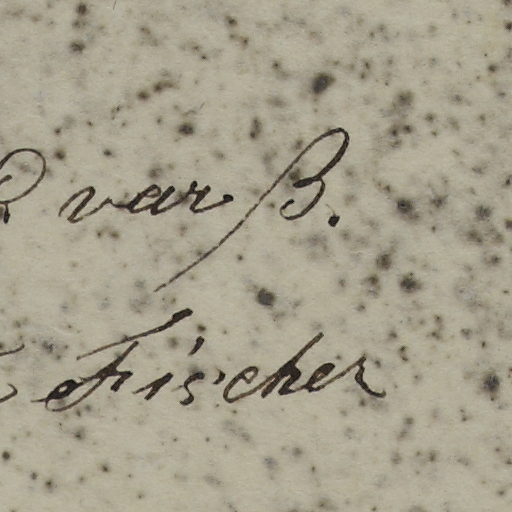 var β.
Fischer